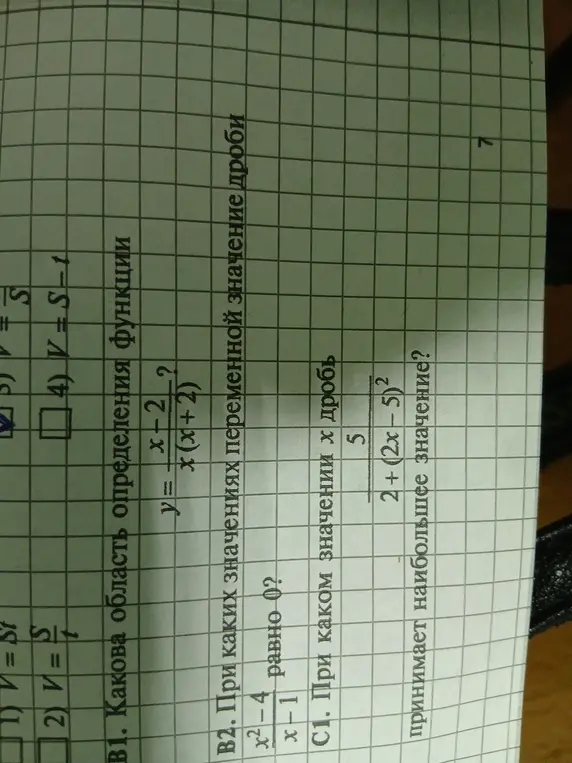 1) V = St
3) V = t/S
2) V = S/t
4) V = S − t
В1. Какова область определения функции
y = (x − 2)/(x (x + 2)) ?
В2. При каких значениях переменной значение дроби
(x² − 4)/(x − 1) равно 0?
С1. При каком значении x дробь
5/(2 + (2x − 5)²)
принимает наибольшее значение?
7